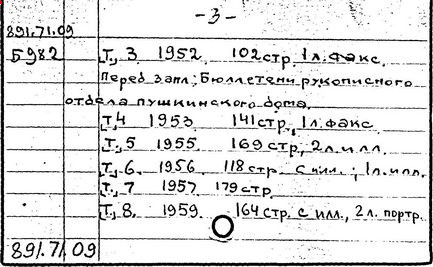 -3-
891.71.09
Б982
Т. 3 1952. 102 стр. 1 л. факс.
Перед загл.: Бюллетени рукописного
отдела пушкинского дома.
Т. 4 1953 141 стр., 1 л. факс.
Т. 5 1955. 169 стр., 2 л. илл.
Т. 6. 1956 118 стр. с илл.; 1 л. илл.
Т. 7 1957 179 стр.
Т. 8. 1959. 164 стр. с илл., 2 л. портр.
891.71.09